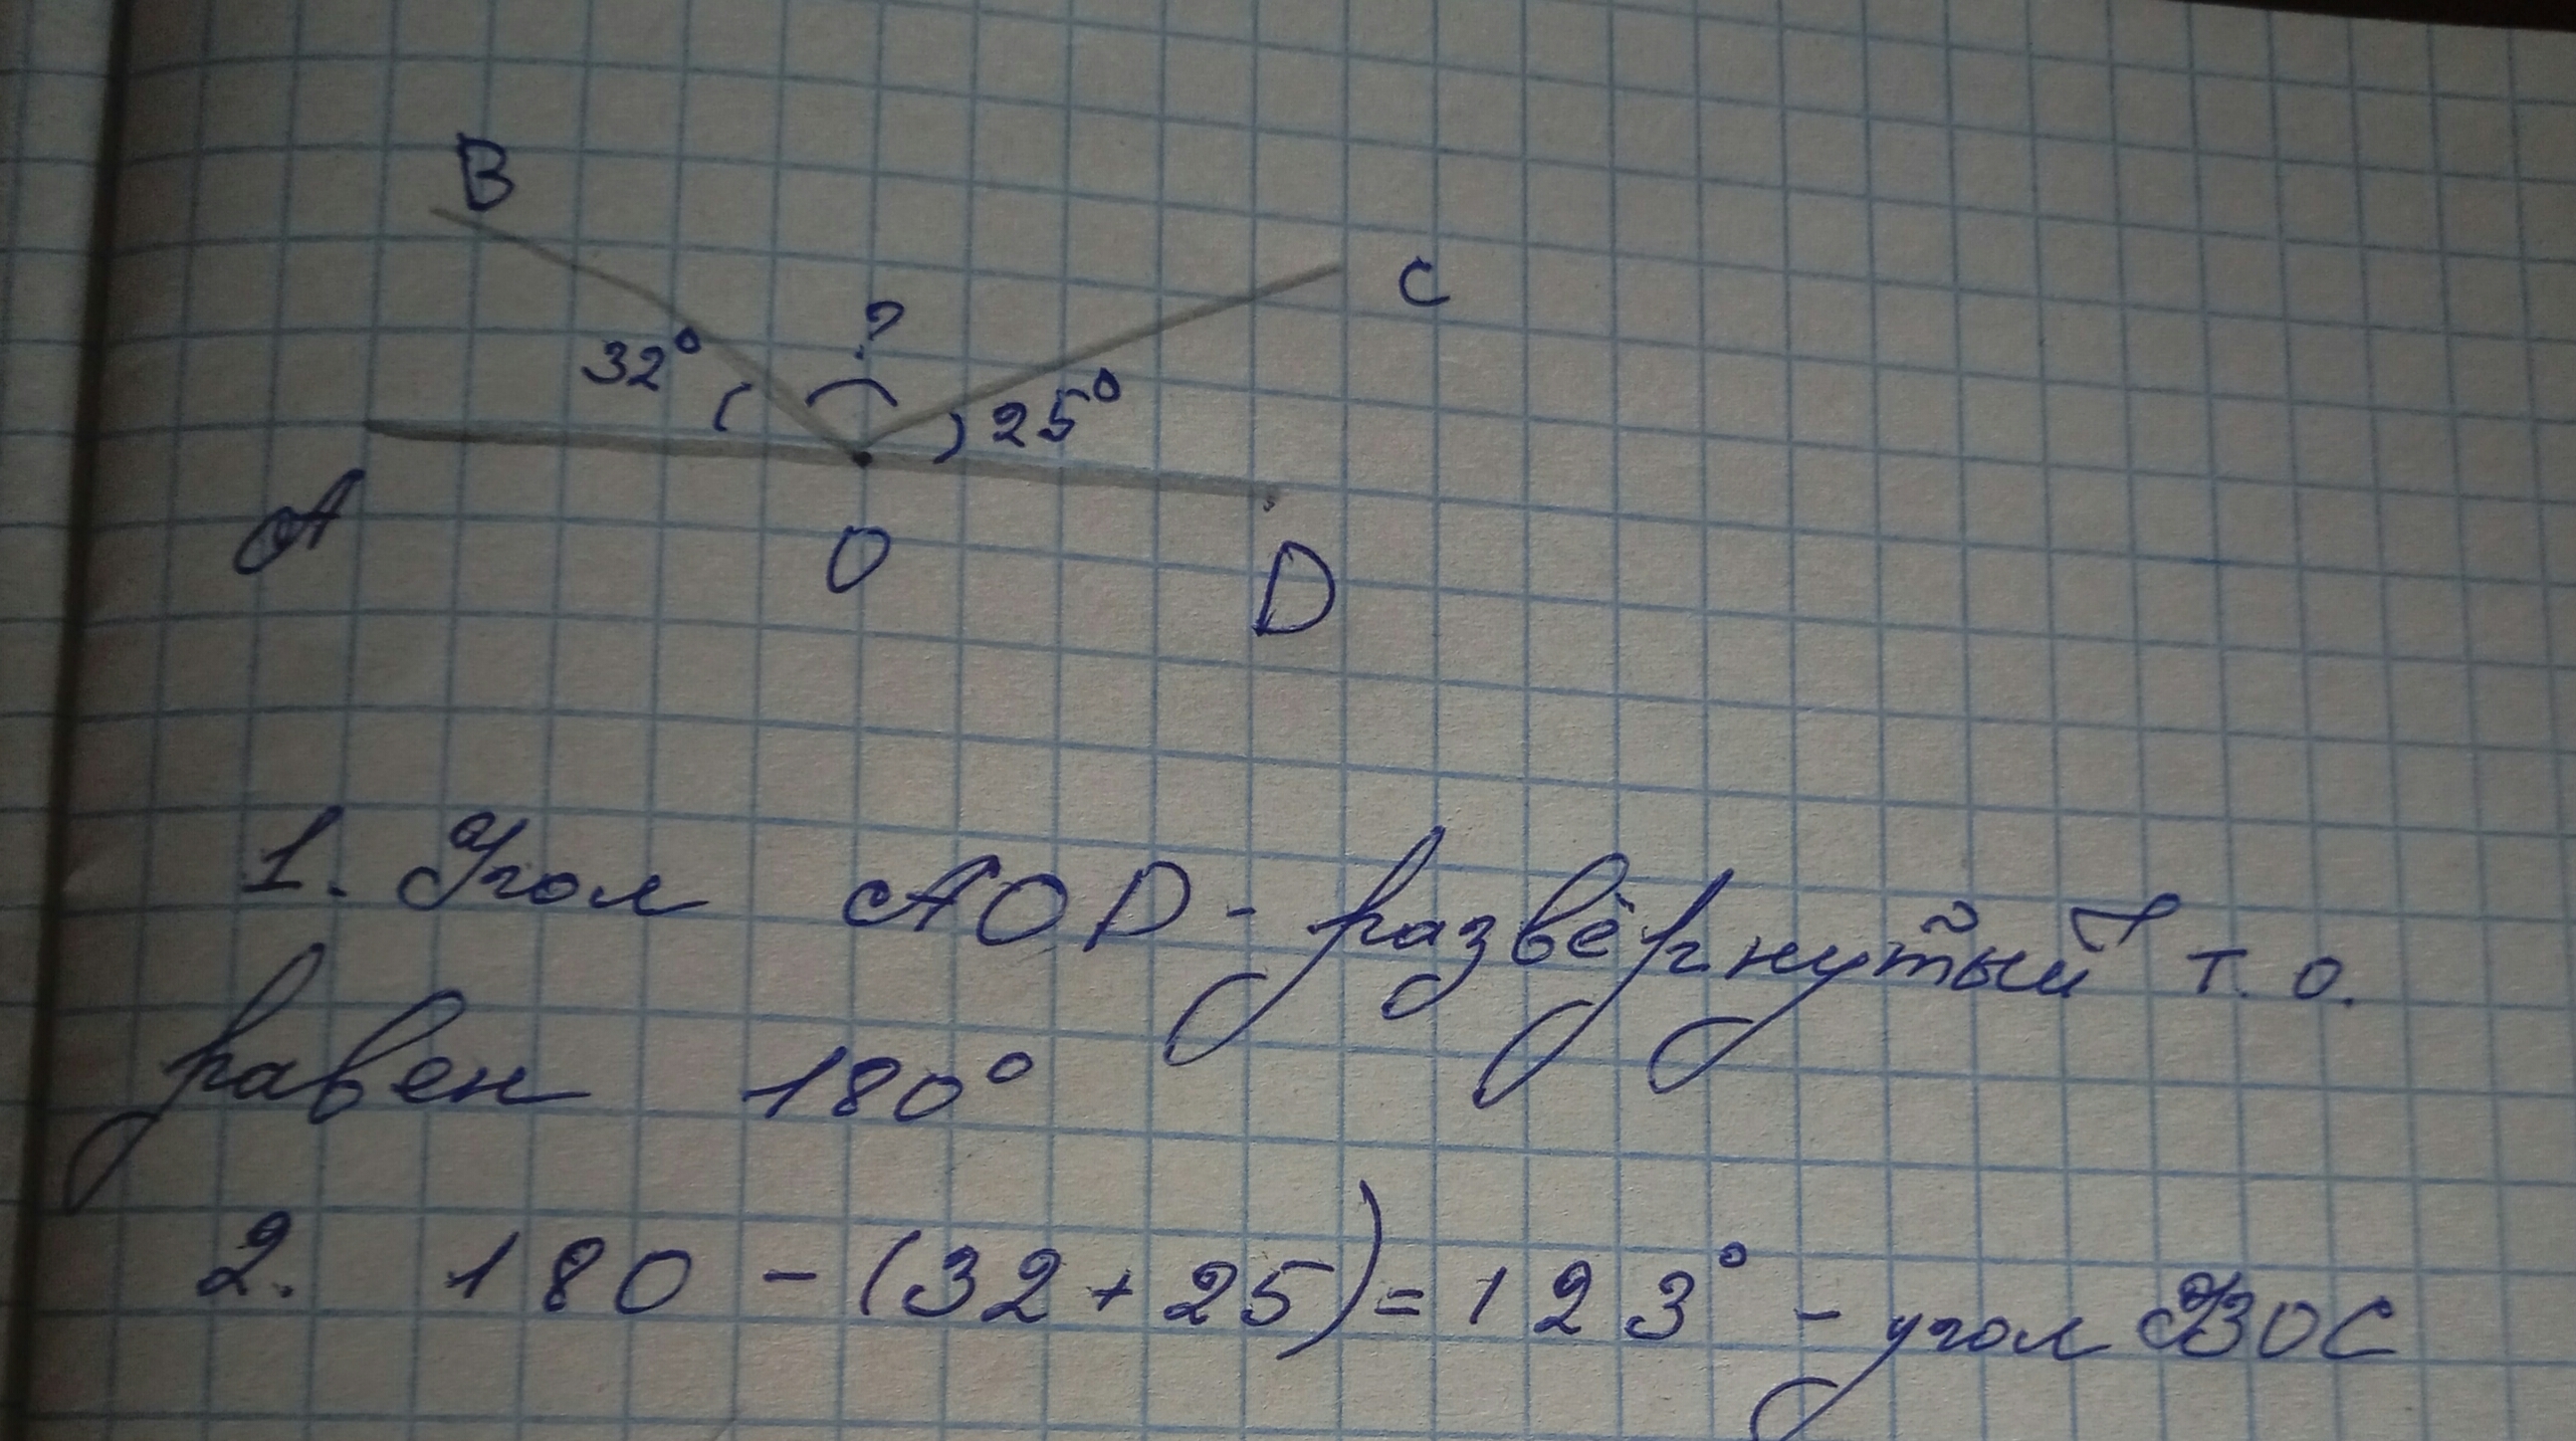 B
C
?
32°
25°
A
O
D
1. Угол AOD - развёрнутый т.о.
равен 180°
2. 180 - (32 + 25) = 123° - угол BOC